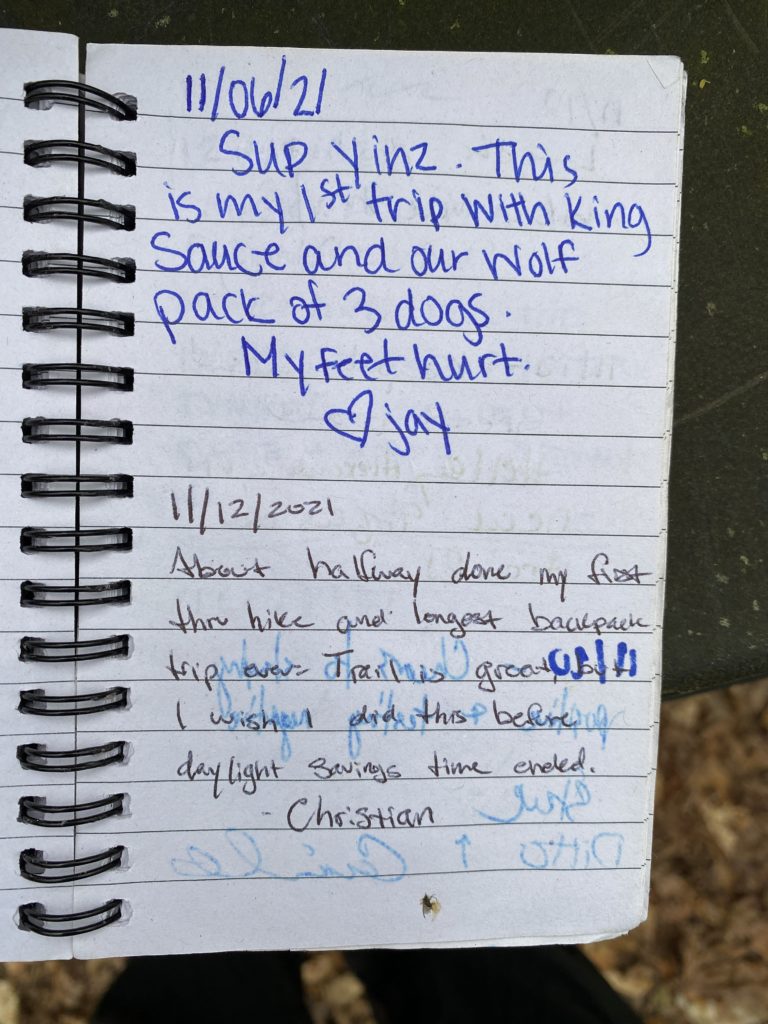 11/06/21
Sup yinz. This
is my 1st trip with King
Sauce and our wolf
pack of 3 dogs.
My feet hurt.
♡ jay
11/12/2021
About halfway done my first
thru hike and longest backpack
trip ever. Trail is great, but
I wish I did this before
daylight savings time ended.
- Christian